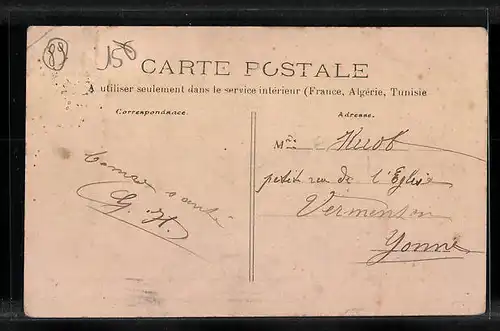 89
150
CARTE POSTALE
A utiliser seulement dans le service intérieur (France, Algérie, Tunisie
Correspondance.
Adresse.
Bonne santé
G. H.
M
petit rue de l'Eglise
Vermenton
Yonne